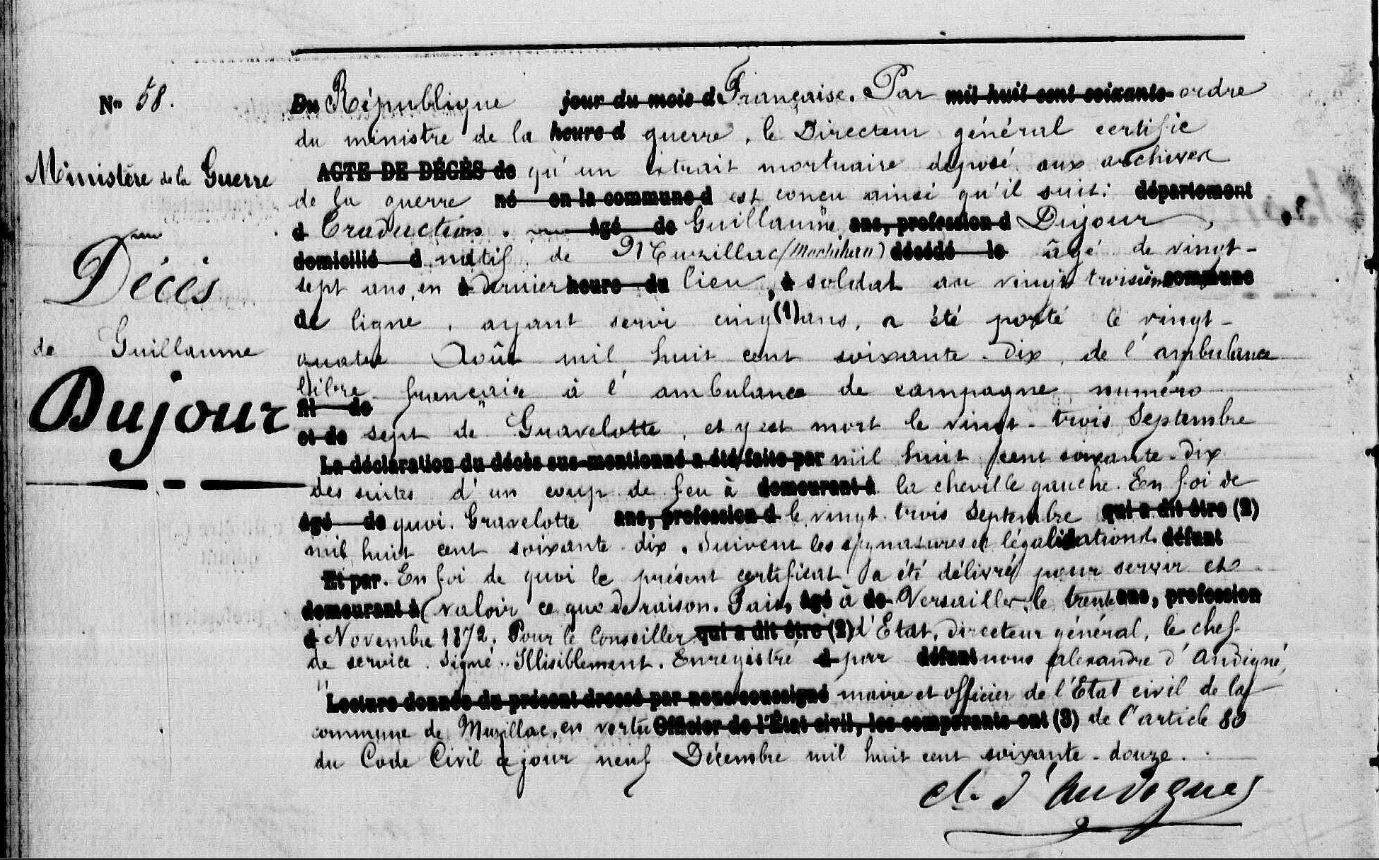 No 58.
Ministère de la Guerre
Décès
de Guillaume
Dujour
Du République jour du mois d Française. Par mil huit cent soixante ordre
du ministre de la heure d guerre, le Directeur général certifie
ACTE DE DÉCÈS de qu'un extrait mortuaire déposé aux archives
de la guerre né en la commune d est conçu ainsi qu'il suit: département
d Traduction. âgé de Guillaume ans, profession d Dujour,
domicilié d natif de Muzillac (Morbihan) décédé le âgé de vingt-
sept ans, en à dernier heure du lieu, à soldat au vingt troisième commune
de ligne, ayant servi cinq (1) ans, a été porté le vingt-
quatre Août mil huit cent soixante-dix, de l'ambulance
libre française à l'ambulance de campagne numéro
fil de
et de sept de Gravelotte, et y est mort le vingt-trois Septembre
La déclaration du décès sus-mentionné a été faite par mil huit cent soixante-dix
des suites d'un coup de feu à demeurant à la cheville gauche. En foi de
âgé de quoi. Gravelotte ans, profession d le vingt trois Septembre qui a dit être (2)
mil huit cent soixante-dix. Suivent les signatures et légalisations défunt
Et par. En foi de quoi le présent certificat a été délivré pour servir et
demeurant à valoir ce que de raison. Fait, âgé à de Versailles, le trente ans, profession
d Novembre 1872. Pour le Conseiller qui a dit être (2) d'Etat, directeur général, le chef
de service. Signé: Illisiblement. Enregistré d par défunt nous Alexandre d'Andigné,
Lecture donnée du présent dressé par nous soussigné maire et officier de l'Etat civil de la
commune de Muzillac, en vertu Officier de l'État civil, les comparants ont (3) de l'article 80
du Code Civil ce jour neuf Décembre mil huit cent soixante-douze.